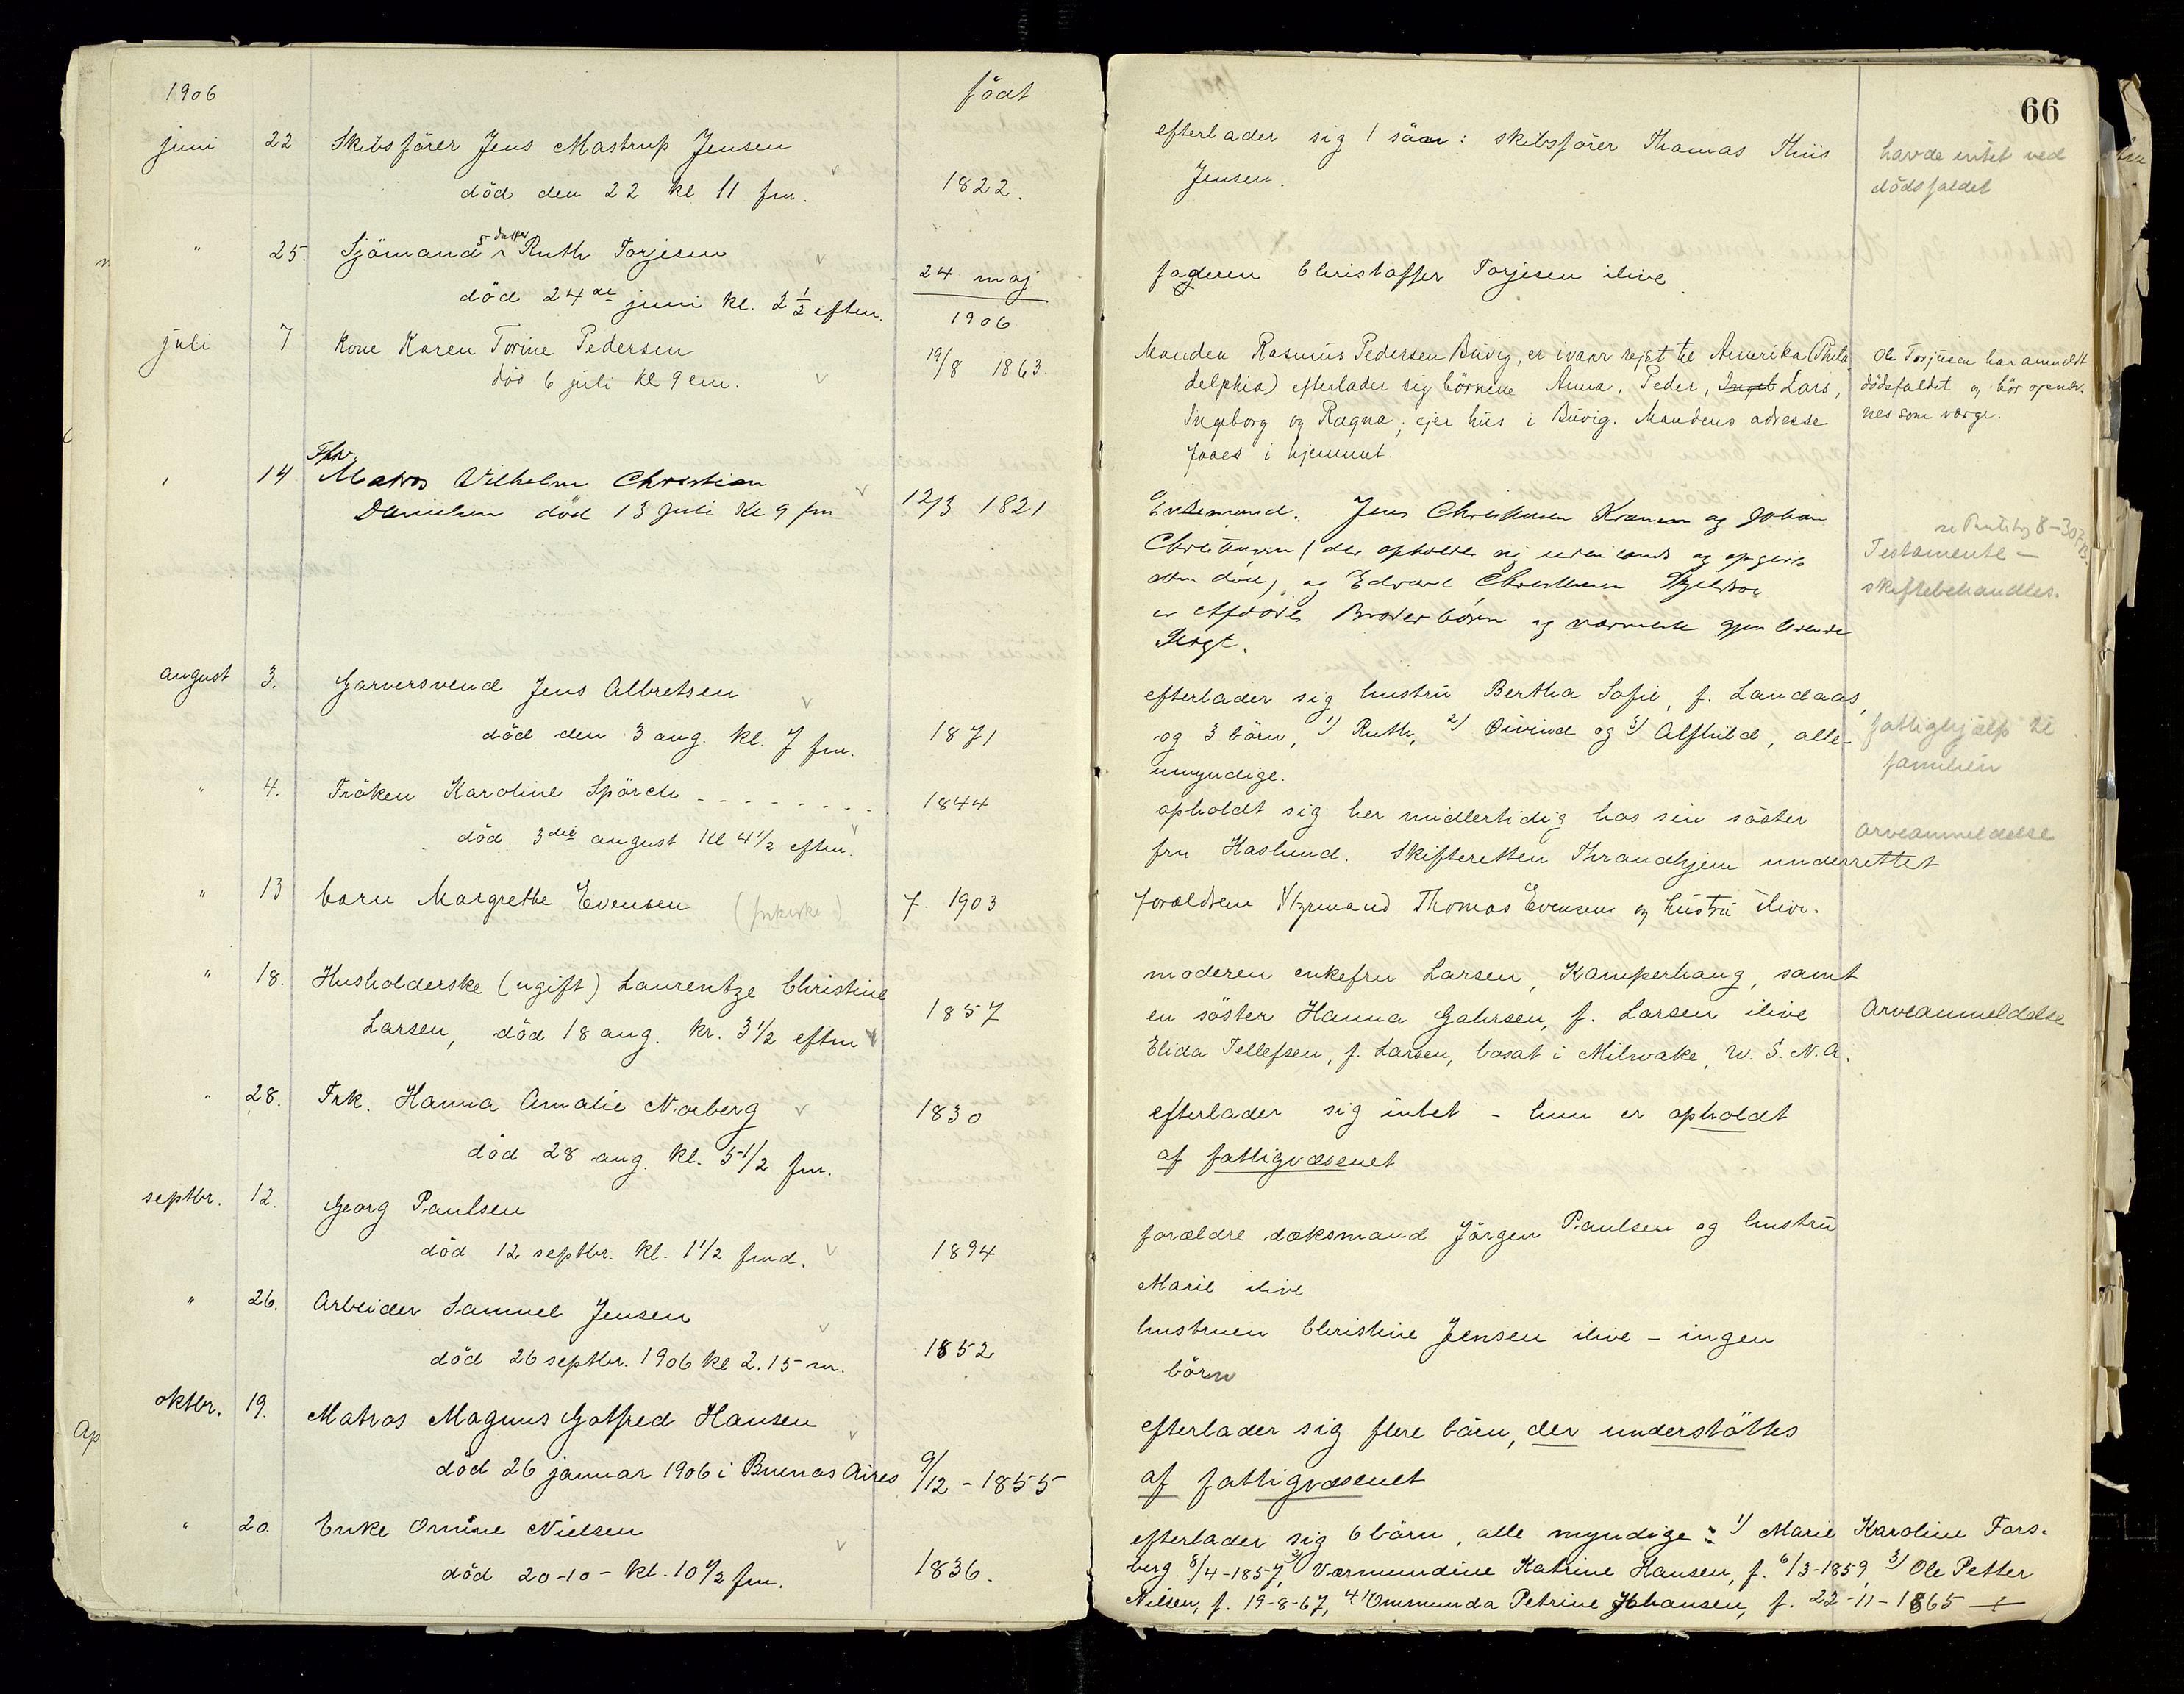 66
1906 født
juni 22 Skibsfører Jens Mastrup Jensen
død den 22 kl 11 fm. 1822.
efterlader sig 1 søn: skibsfører Thomas Thiis
Jensen.
havde intet ved
dødsfaldet
" 25. Sjømands datter Ruth Torjesen
død 24de juni kl. 2 1/2 eftm. 24 maj
1906
faderen Christoffer Torjesen ilive
juli 7 Kone Karen Torine Pedersen 19/8 1863.
død 6 juli kl 9 em.
Manden Rasmus Pedersen Buvig, er ivaar rejst til Amerika (Phila
delphia) efterlader sig børnene Anna, Peder, Ingeb Lars,
Ingeborg og Ragna; ejer hus i Buvig. Mandens adresse
faaes i hjemmet.
Ole Torjusen har anmeldt
dødsfaldet og bør opnæv-
nes som værge.
" 14 Fhv.
Matros Vilhelm Christian
Danielsen død 13 Juli Kl 9 fm 12/3 1821
Enkemand. Jens Christensen og Johan
Christensen (der opholder sig udenlands og opgives
død) og Edvard Christensen
er Afdødes Broderbørn og nærmeste gjenlevende
Slægt.
Testamente –
skiftebehandles.
august 3. Garversvend Jens Albretsen
død den 3 aug. kl. 7 fm. 1871
efterlader sig hustru Bertha Sofie, f. Landaas,
og 3 børn, 1) Ruth, 2) Øivind og 3) Alfhild, alle
umyndige.
fattighjælp til
familien
" 4. Frøken Karoline Spörck - - - - - - - - 1844
død 3die august Kl 4 1/2 eftm.
opholdt sig her midlertidig hos sin søster
fru Haslund. Skifteretten Thrandhjem underrettet
arveanmeldelse
" 13 barn Margrethe Evensen f. 1903
forældrene Styrmand Thomas Evensens og hustru ilive.
" 18. Husholderske (ugift) Laurentze Christine
Larsen, død 18 aug. kr. 3 1/2 eftm 1857
moderen enkefru Larsen, Kamperhaug, samt
en søster Hanna Gahrsen, f. Larsen ilive
Elida Tellefsen, f. Larsen, bosat i Milwake, U. S. N. A.
Arveanmeldelse
" 28. Frk. Hanna Amalie Norberg 1830
død 28 aug. kl. 5 1/2 fm.
efterlader sig intet - hun er opholdt
af fattigvæsenet
septbr. 12. Georg Paulsen
død 12 septbr. kl. 1 1/2 fmd. 1894
forældre dæksmand Jörgen Paulsen og hustru
Marie ilive
" 26. Arbeider Samuel Jensen
død 26 septbr. 1906 kl 2.15 m. 1852
hustruen Christine Jensen ilive - ingen
børn
oktbr. 19. Matros Magnus Gotfred Hansen
død 26 januar 1906 i Buenos Aires 9/12 - 1855
efterlader sig flere børn, der understøttes
af fattigvæsenet
" 20. Enke Omine Nielsen
død 20-10- kl. 10 1/2 fm. 1836.
efterlader sig 6 børn, alle myndige: 1) Marie Karoline Fors-
berg 8/4-1857, 2) Værmundine Katrine Hansen, f. 6/3-1859, 3) Ole Petter
Nilsen, f. 19-8-67, 4) Ommunda Petrine Johansen, f. 22-11-1865
Ap